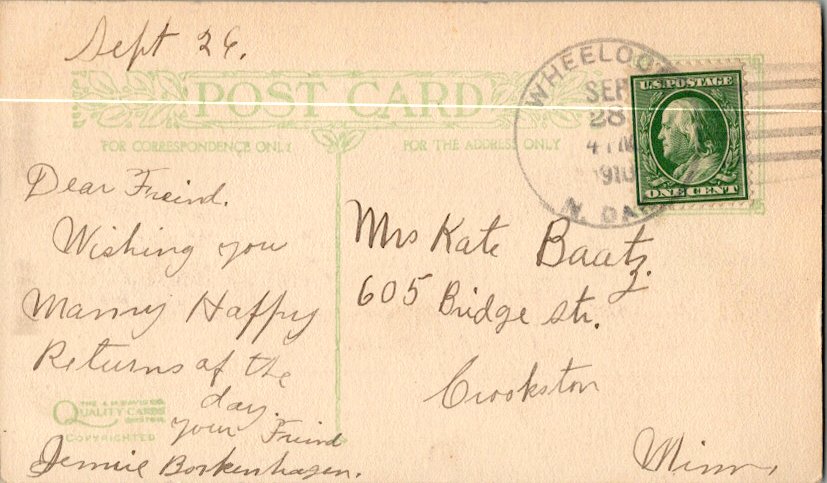 Sept 26.
POST CARD
FOR CORRESPONDENCE ONLY
FOR THE ADDRESS ONLY
WHEELOC
SEP
28
4 PM
1910
N. DA
U.S. POSTAGE
ONE CENT
Dear Freind.
Wishing you
Manny Happy
Returns of the
day.
your Friend
Jennie Borkenhagen.
Mrs Kate Baatz.
605 Bridge str.
Crookston
Minn,
THE A.M. DAVIS CO.
QUALITY CARDS
BOSTON
COPYRIGHTED